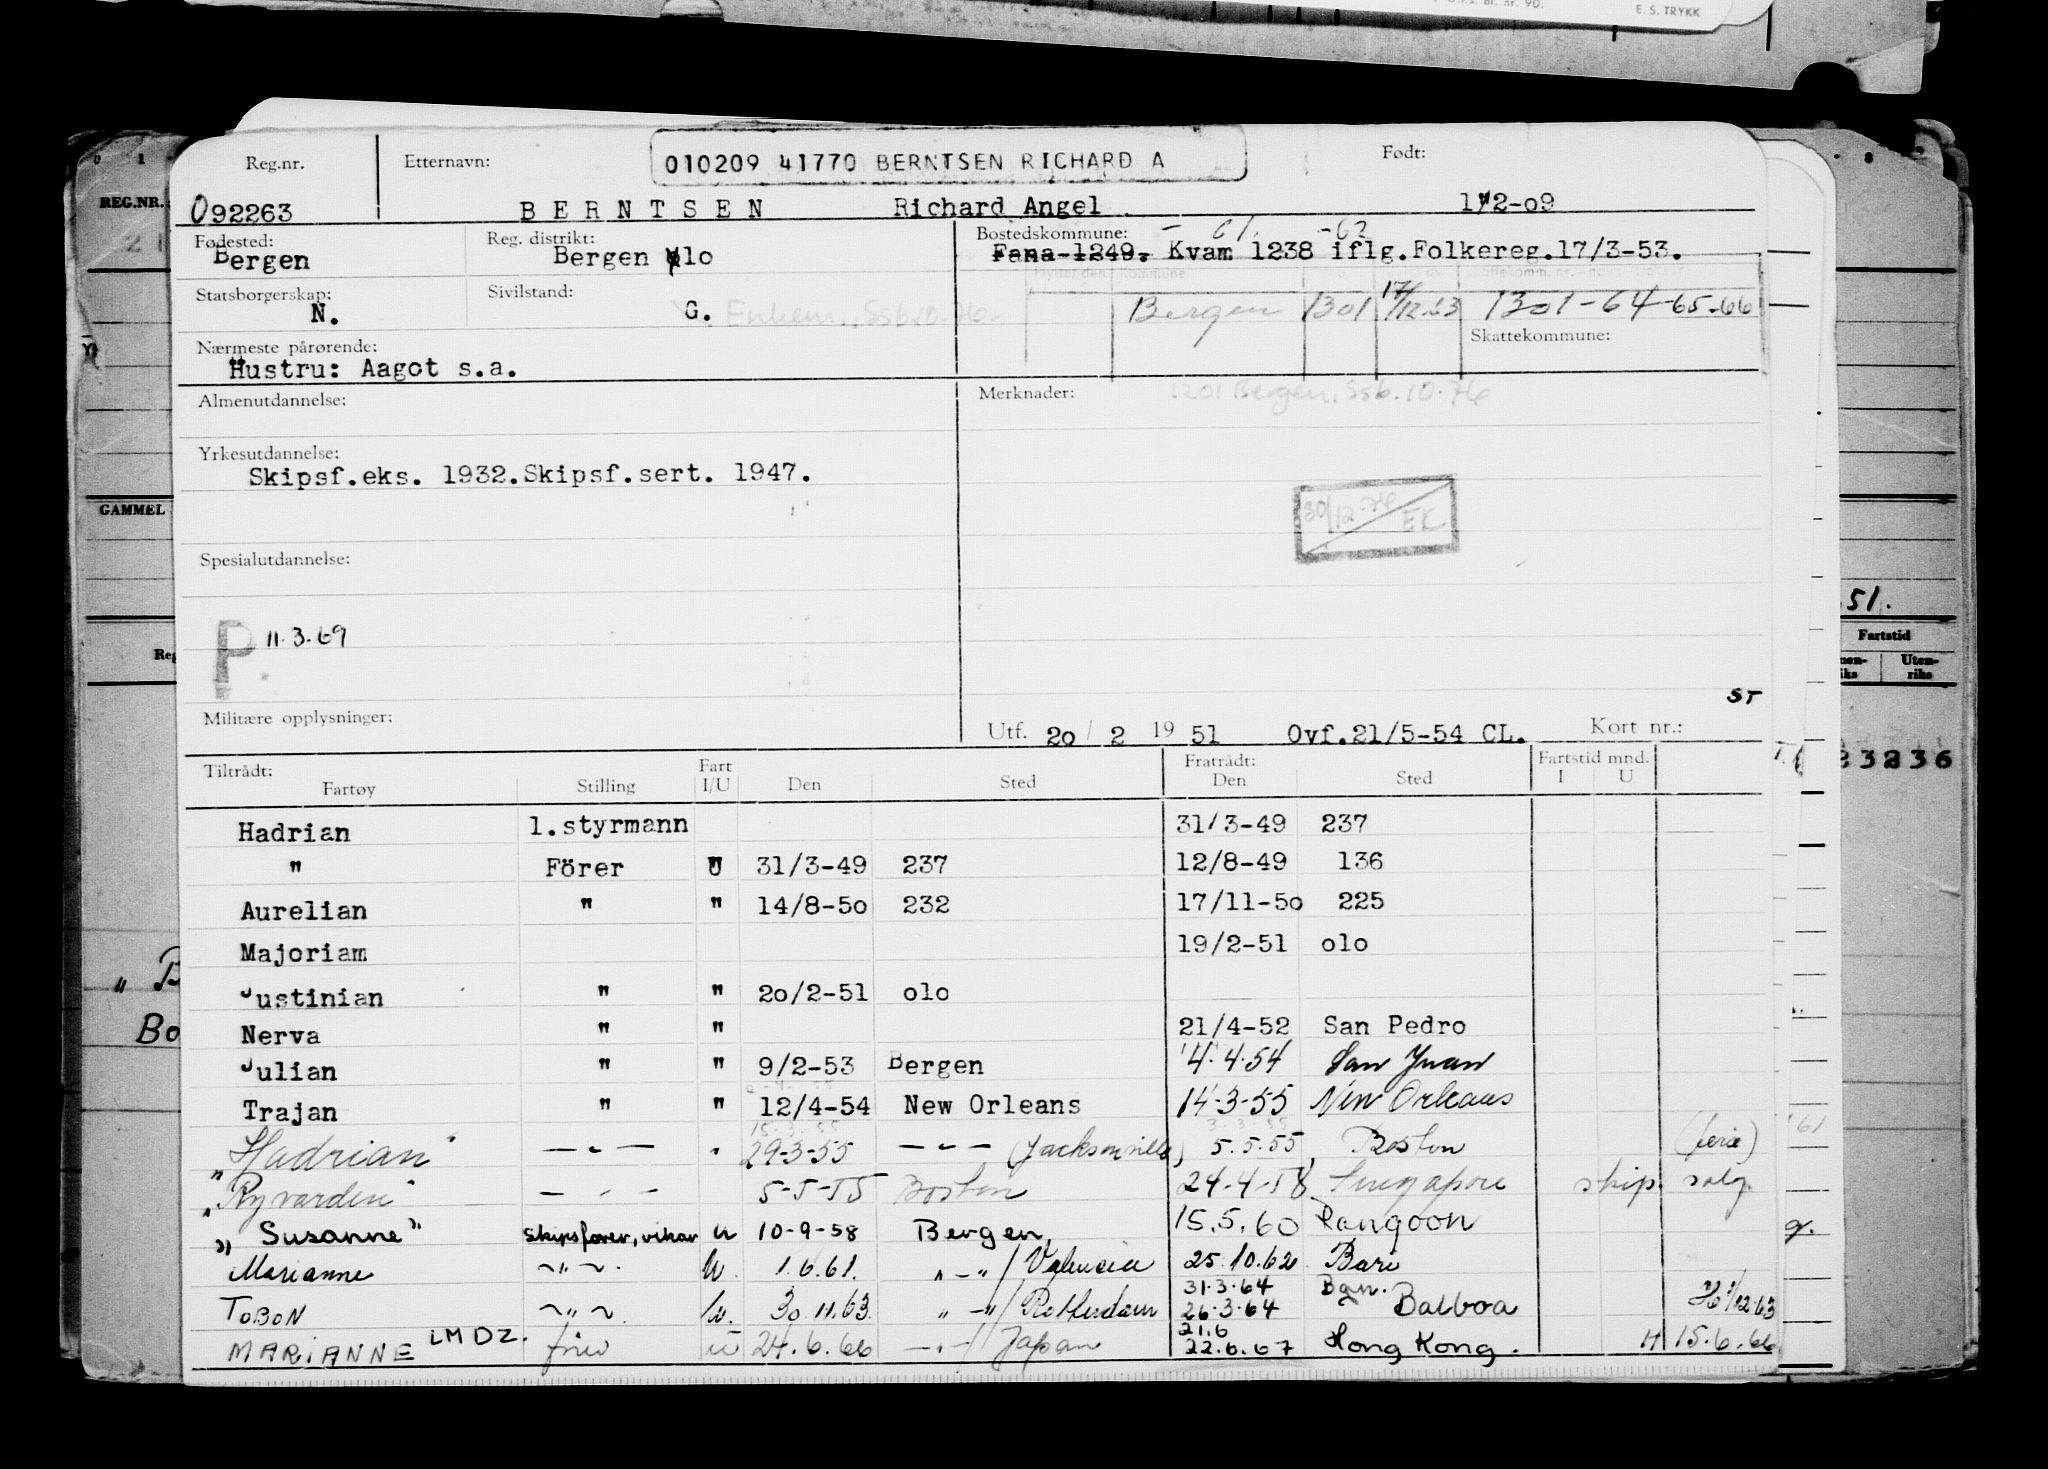 Bl. nr. 90.
E. S. TRYKK
REG.NR.
GAMMEL
51.
Fartstid
Uten-
riks
23236
Reg.nr.
Etternavn:
010209 41770 BERNTSEN RICHARD A
Født:
092263
BERNTSEN
Richard Angel
1/2-09
Fødested:
Bergen
Reg. distrikt:
Bergen olo
Bostedskommune:
- 61. -62
Fana 1249. Kvam 1238 iflg.Folkereg.17/3-53.
Statsborgerskap:
N.
Sivilstand:
G.
Enkem., Ssb.10.76.
Bergen 1301 17/12.63 1301-64-65-66
Skattekommune:
Nærmeste pårørende:
Hustru: Aagot s.a.
Almenutdannelse:
Merknader:
1201 Bergen, Ssb. 10.76
Yrkesutdannelse:
Skipsf.eks. 1932.Skipsf.sert. 1947.
30/12-76 EK
Spesialutdannelse:
P 11.3.69
ST
Militære opplysninger:
Utf. 20 / 2 19 51 Ovf.21/5-54 CL.
Kort nr.:
Tiltrådt:
Fartøy
Stilling
Fart
I/U
Den
Sted
Fratrådt:
Den
Sted
Fartstid mnd.
I
U
Hadrian 1.styrmann 31/3-49 237
" Förer U 31/3-49 237 12/8-49 136
Aurelian " " 14/8-50 232 17/11-50 225
Majoriam 19/2-51 olo
Justinian " " 20/2-51 olo
Nerva " " 21/4-52 San Pedro
Julian " " 9/2-53 Bergen 4.4.54 San Juan
Trajan " " 12/4-54 New Orleans 14-3-55 New Orleans
15.3.55 3.3.55
"Hadrian" — " — " 29-3-55 — " — (Jacksonville) 5.5.55, Boston (ferie)
"Ryvarden" — " — 5-5-55 Boston 24-4-58 Singapore skip. salg.
"Susanne" Skipsfører, vikar u 10-9-58 Bergen, 15.5.60 Rangoon
Marianne ~ " ~ U. 1.6.61. " - " / Valencia 25.10.62 Bari
31.3.64 Bgn.
TOBON ~ " ~ U. 30.11.63. " - " / Rotterdam 26.3.64 Balboa H 1/12.63
21.6
MARIANNE LMDZ. fører u 24.6.66 — " — / Japan 22.6.67 Hong Kong. H 15.6.66